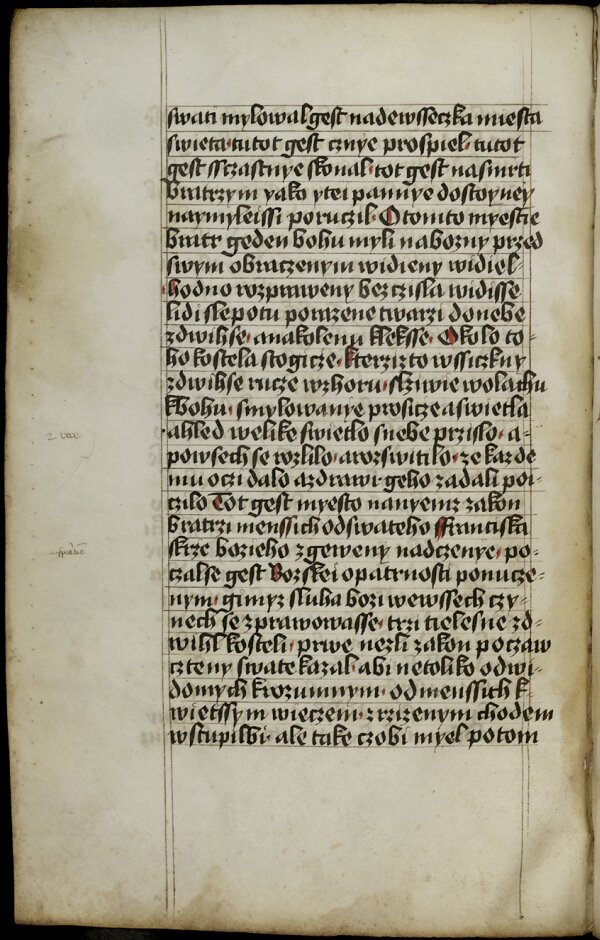 swati mylowal gest nadewsseczka miesta
swieta· tutot gest cznye prospiel· tutot
gest ssczastnye skonal· tot gest nasmrti
bratrzym yako ytei pannye dostoyney
naymyleissi poruczil· O tomto myestie
bratr geden bohu myli nabozny przed
swym obraczenym widieny widiel-
hodno rozpraweny bez czisla widisse
lidi slepotu porazene twarzi donebe
zdwihse· anakolenu kleksse· Okolo to-
ho kostela stogicze· kterzizto wssiczkny
zdwihse rucze wzhoru· slziwie wolachu
kbohu· smylowanye prosicze a swietla
ahled welike swietlo snebe przislo· a-
powsech se rozlilo· arozswitilo· ze kazde
mu oczi dalo azdrawi geho zadali poi-
czilo Tot gest myesto nanyemz zakon
bratrzi menssich odswateho ffranciska
skrze bozieho zgeweny nadczenye· po-
czalse gest Bozskei opatrnosti ponucze-
nym· gimyz sluha bozi wewssech czy-
nech se zprawowasse· trzi tielesne zd-
wihl kosteli· prwe nezli zakon poczaw
czteny swate kazal· abi netoliko odwi-
domych krozumnym· odmenssich k-
wietssym wieczem· zrzizenym chodem
wstupilbi· ale take czobi myel potom